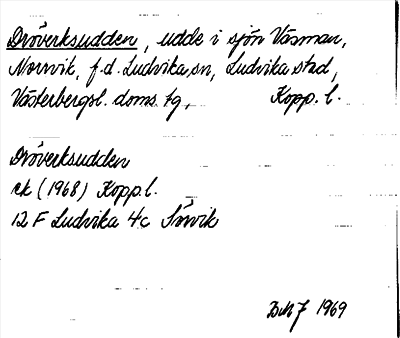 Dröverksudden, udde i sjön Väsman,
Norrvik, f.d. Ludvika sn, Ludvika stad,
Västerbergsl. doms. tg, Kopp. l.
Dröverksudden
rk (1968) Kopp. l.
12 F Ludvika 4c Sörvik
1969